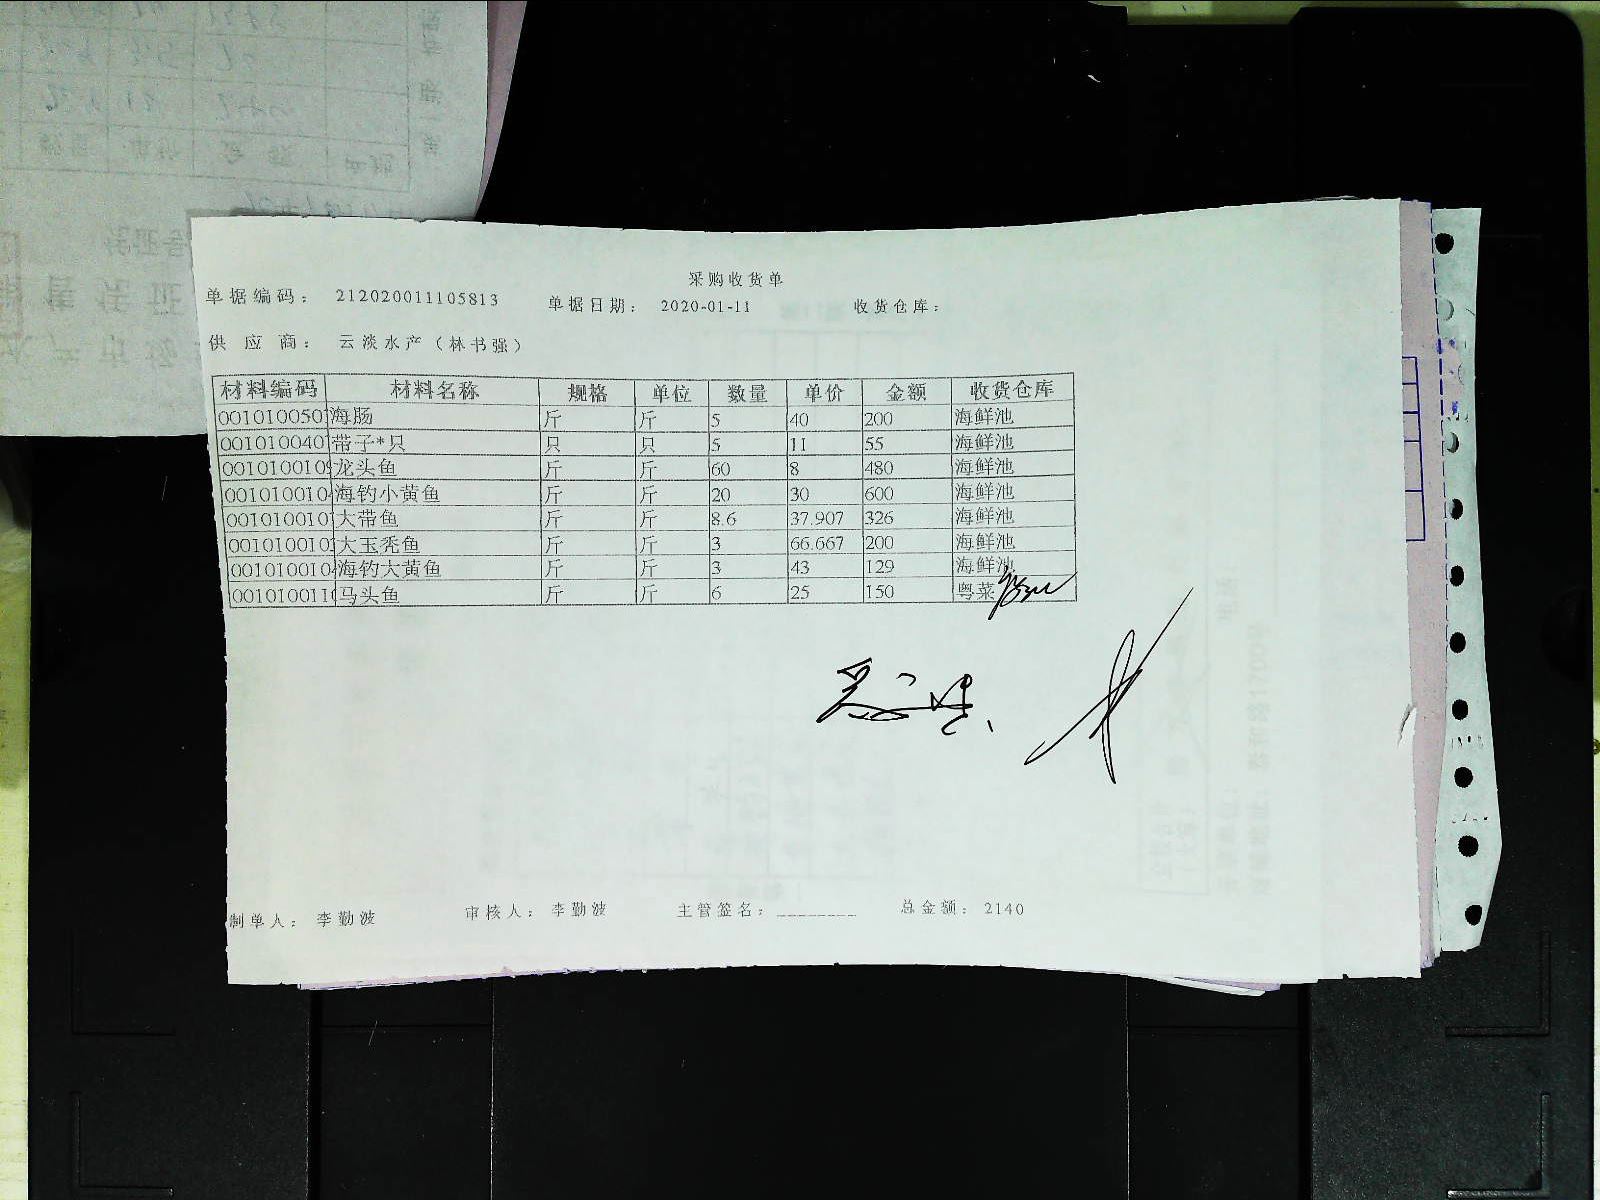 采购收货单
单据编码： 212020011105813 单据日期： 2020-01-11 收货仓库：
供 应 商： 云淡水产（林书强）
材料编码 材料名称 规格 单位 数量 单价 金额 收货仓库
0010100501 海肠 斤 斤 5 40 200 海鲜池
0010100401 带子*只 只 只 5 11 55 海鲜池
0010100109 龙头鱼 斤 斤 60 8 480 海鲜池
001010010 海钓小黄鱼 斤 斤 20 30 600 海鲜池
001010010 大带鱼 斤 斤 8.6 37.907 326 海鲜池
001010010 大玉秃鱼 斤 斤 3 66.667 200 海鲜池
001010010 海钓大黄鱼 斤 斤 3 43 129 海鲜池
001010011 马头鱼 斤 斤 6 25 150 粤菜
制单人： 李勤波 审核人： 李勤波 主管签名：________ 总金额： 2140